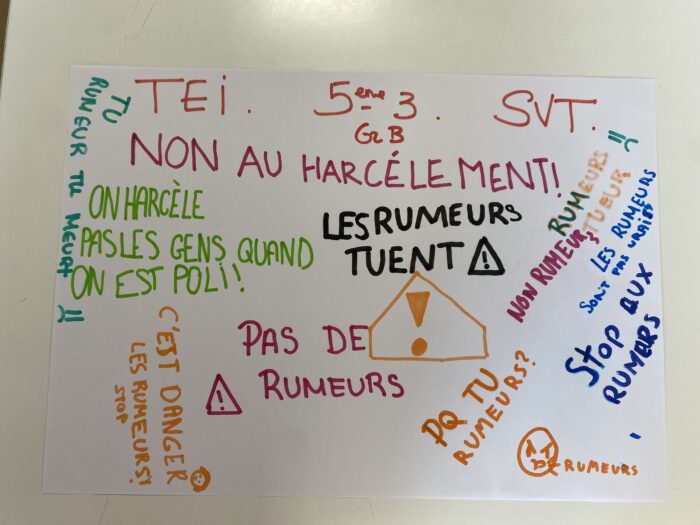 TEI. 5eme 3. SVT.
Gr B
NON AU HARCÉLEMENT!
TU RUMEUR TU MEURT !!
ON HARCÈLE
PAS LES GENS QUAND
ON EST POLI!
LES RUMEURS
TUENT
RUMEURS
TUEUR
!!
NON RUMEURS
LES RUMEURS
SONT PAS VRAIES
STOP AUX
RUMEURS
PAS DE
RUMEURS
C'EST DANGER
LES RUMEURS!
STOP
PQ TU
RUMEURS?
RUMEURS